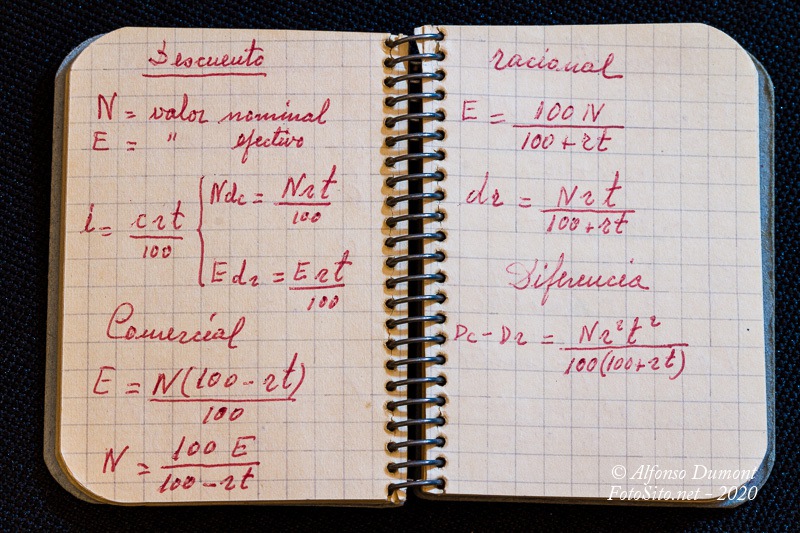 Descuento
N = valor nominal
E = " efectivo
i = crt/100 { Ndc = Nrt/100
Edr = Ert/100
Comercial
E = N(100-rt)/100
N = 100 E/100-rt
racional
E = 100 N/100+rt
dr = Nrt/100+rt
Diferencia
Dc-Dr = Nr²t²/100(100+rt)
© Alfonso Dumont
FotoSito.net - 2020